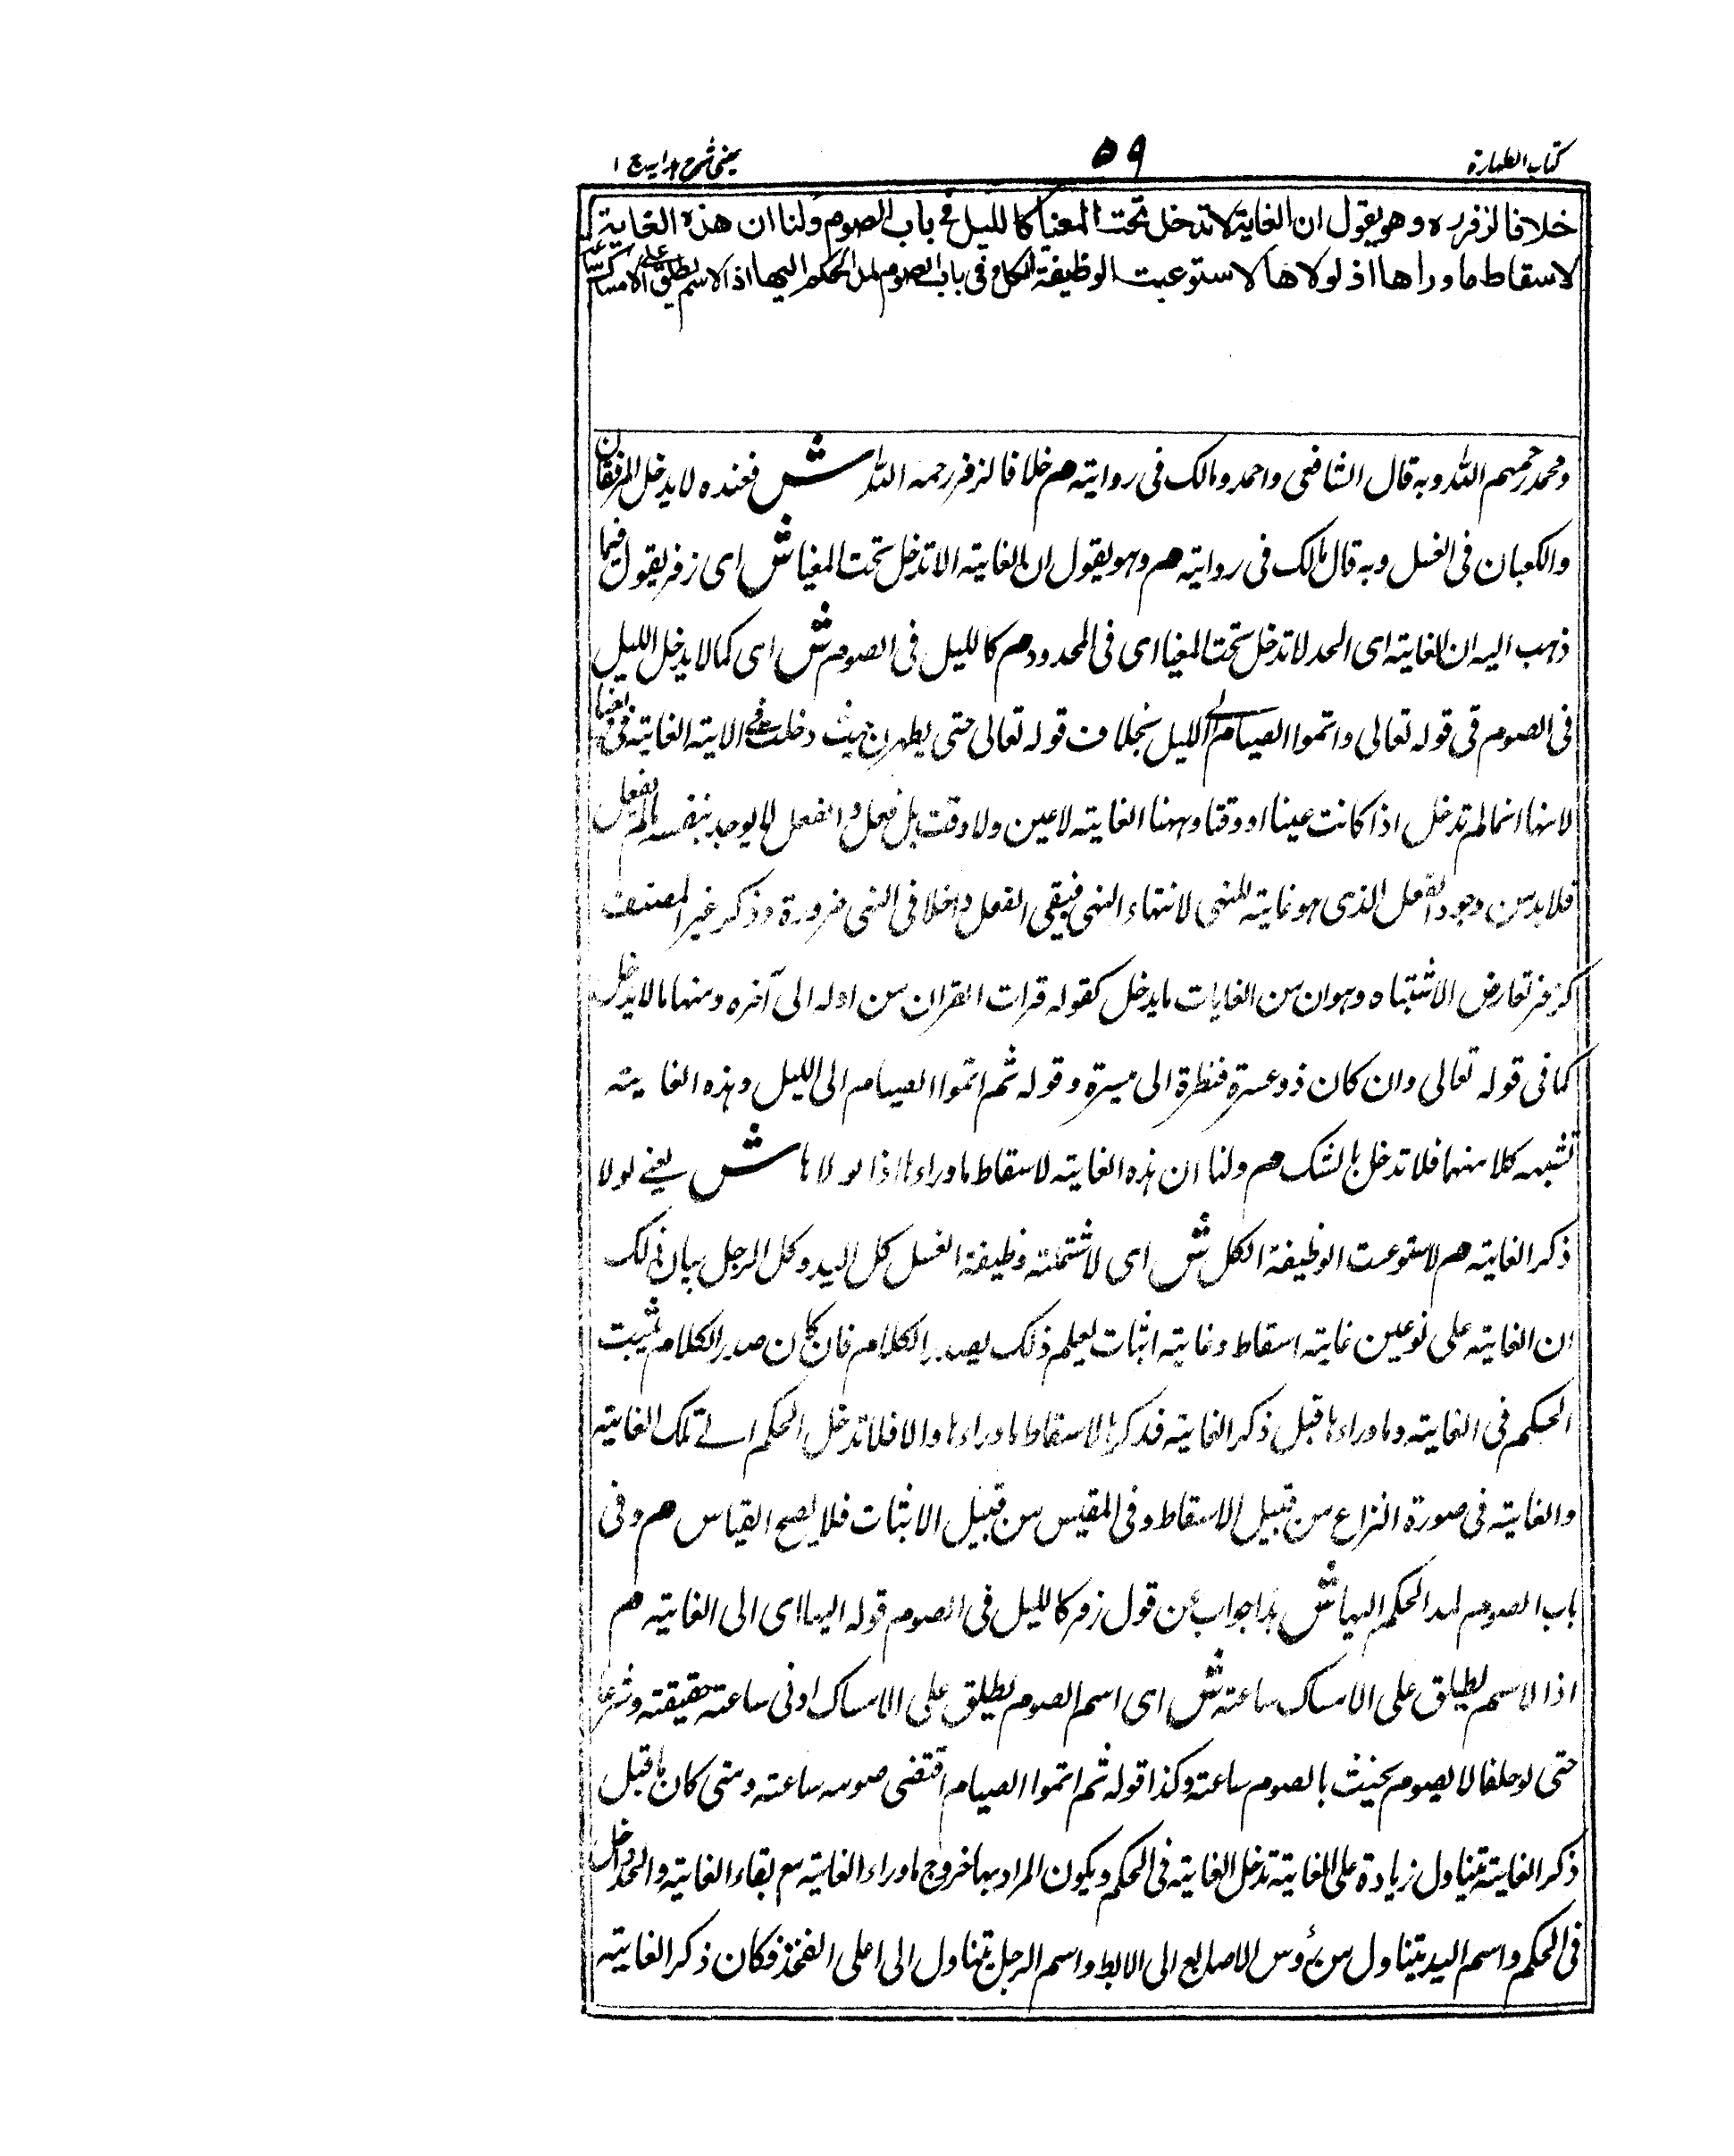 كتاب الطهارة
٥٩
عينى شرح هدايه ج ١
خلافا لزفر ره وهو يقول ان الغاية لا تدخل تحت المغيا كالليل فى باب الصوم ولنا ان هذه الغاية
لاسقاط ما وراها اذ لولاها لاستوعبت الوظيفة الكل وفى باب الصوم لمد الحكم اليها اذ الاسم يطلق على الامساك ساعة
ومحمد رحمهم الله وبه قال الشافعى واحمد ومالك فى رواية م خلافا لزفر رحمه الله ش فعنده لا يدخل المرفقان
والكعبان فى الغسل وبه قال مالك فى رواية م وهو يقول ان الغاية الا تدخل تحت المغيا ش اى زفر يقول فيما
ذهب اليه ان الغاية اى الحد لا تدخل تحت المغيا اى فى المحدود م كالليل فى الصوم ش اى كما لا يدخل الليل
فى الصوم فى قوله تعالى واتموا الصيام الى الليل بخلاف قوله تعالى حتى يطهرن حيث دخلت فى الاية الغاية فى المغيا
لانها انما لم تدخل اذا كانت عينا او وقتا وههنا الغاية لا عين ولا وقت بل فعل والفعل لا يوجد بنفسه ما لم يفعل
فلا بد من وجود الفعل الذى هو غاية النهى لانتهاء النهى فيبقى الفعل داخلا فى النهى ضرورة وذكر غير المصنف
لزفر تعارض الاشتباه وهو ان من الغايات ما يدخل كقوله قرات القران من اوله الى آخره ومنها ما لا يدخل
كما فى قوله تعالى وان كان ذو عسرة فنظرة الى ميسرة وقوله ثم اتموا الصيام الى الليل وهذه الغاية
تشبه كلا منهما فلا تدخل بالشك م ولنا ان هذه الغاية لاسقاط ما وراءها اذا لولاها ش يعنے لولا
ذكر الغاية م لاستوعبت الوظيفة الكل ش اى لاشتملت وظيفة الغسل كل اليد وكل الرجل بيان ذلك
ان الغاية على نوعين غاية اسقاط وغاية اثبات يعلم ذلك بصدر الكلام فان كان صدر الكلام يثبت
الحكم فى الغاية وما وراءها قبل ذكر الغاية فذكرها لاسقاط ما وراءها والا فلا تدخل الحكم الے تلك الغاية
والغاية فى صورة النزاع من قبيل الاسقاط وفى المقيس من قبيل الاثبات فلا يصح القياس م وفى
باب الصوم لمد الحكم اليها ش هذا جواب عن قول زفر كالليل فى الصوم قوله اليها اى الى الغاية م
اذ الاسم يطلق على الامساك ساعة ش اى اسم الصوم يطلق على الامساك ادنى ساعة حقيقة وشرعا
حتى لو حلف لا يصوم يحنث بالصوم ساعة وكذا قوله ثم اتموا الصيام اقتضى صومه ساعة ومتى كان ما قبل
ذكر الغاية يتناول زيادة على الغاية تدخل الغاية فى الحكم ويكون المراد بها خروج ما وراء الغاية مع بقاء الغاية والحد داخل
فى الحكم واسم اليد يتناول من رؤس الاصابع الى الابط واسم الرجل يتناول الى اعلى الفخذ فكان ذكر الغاية